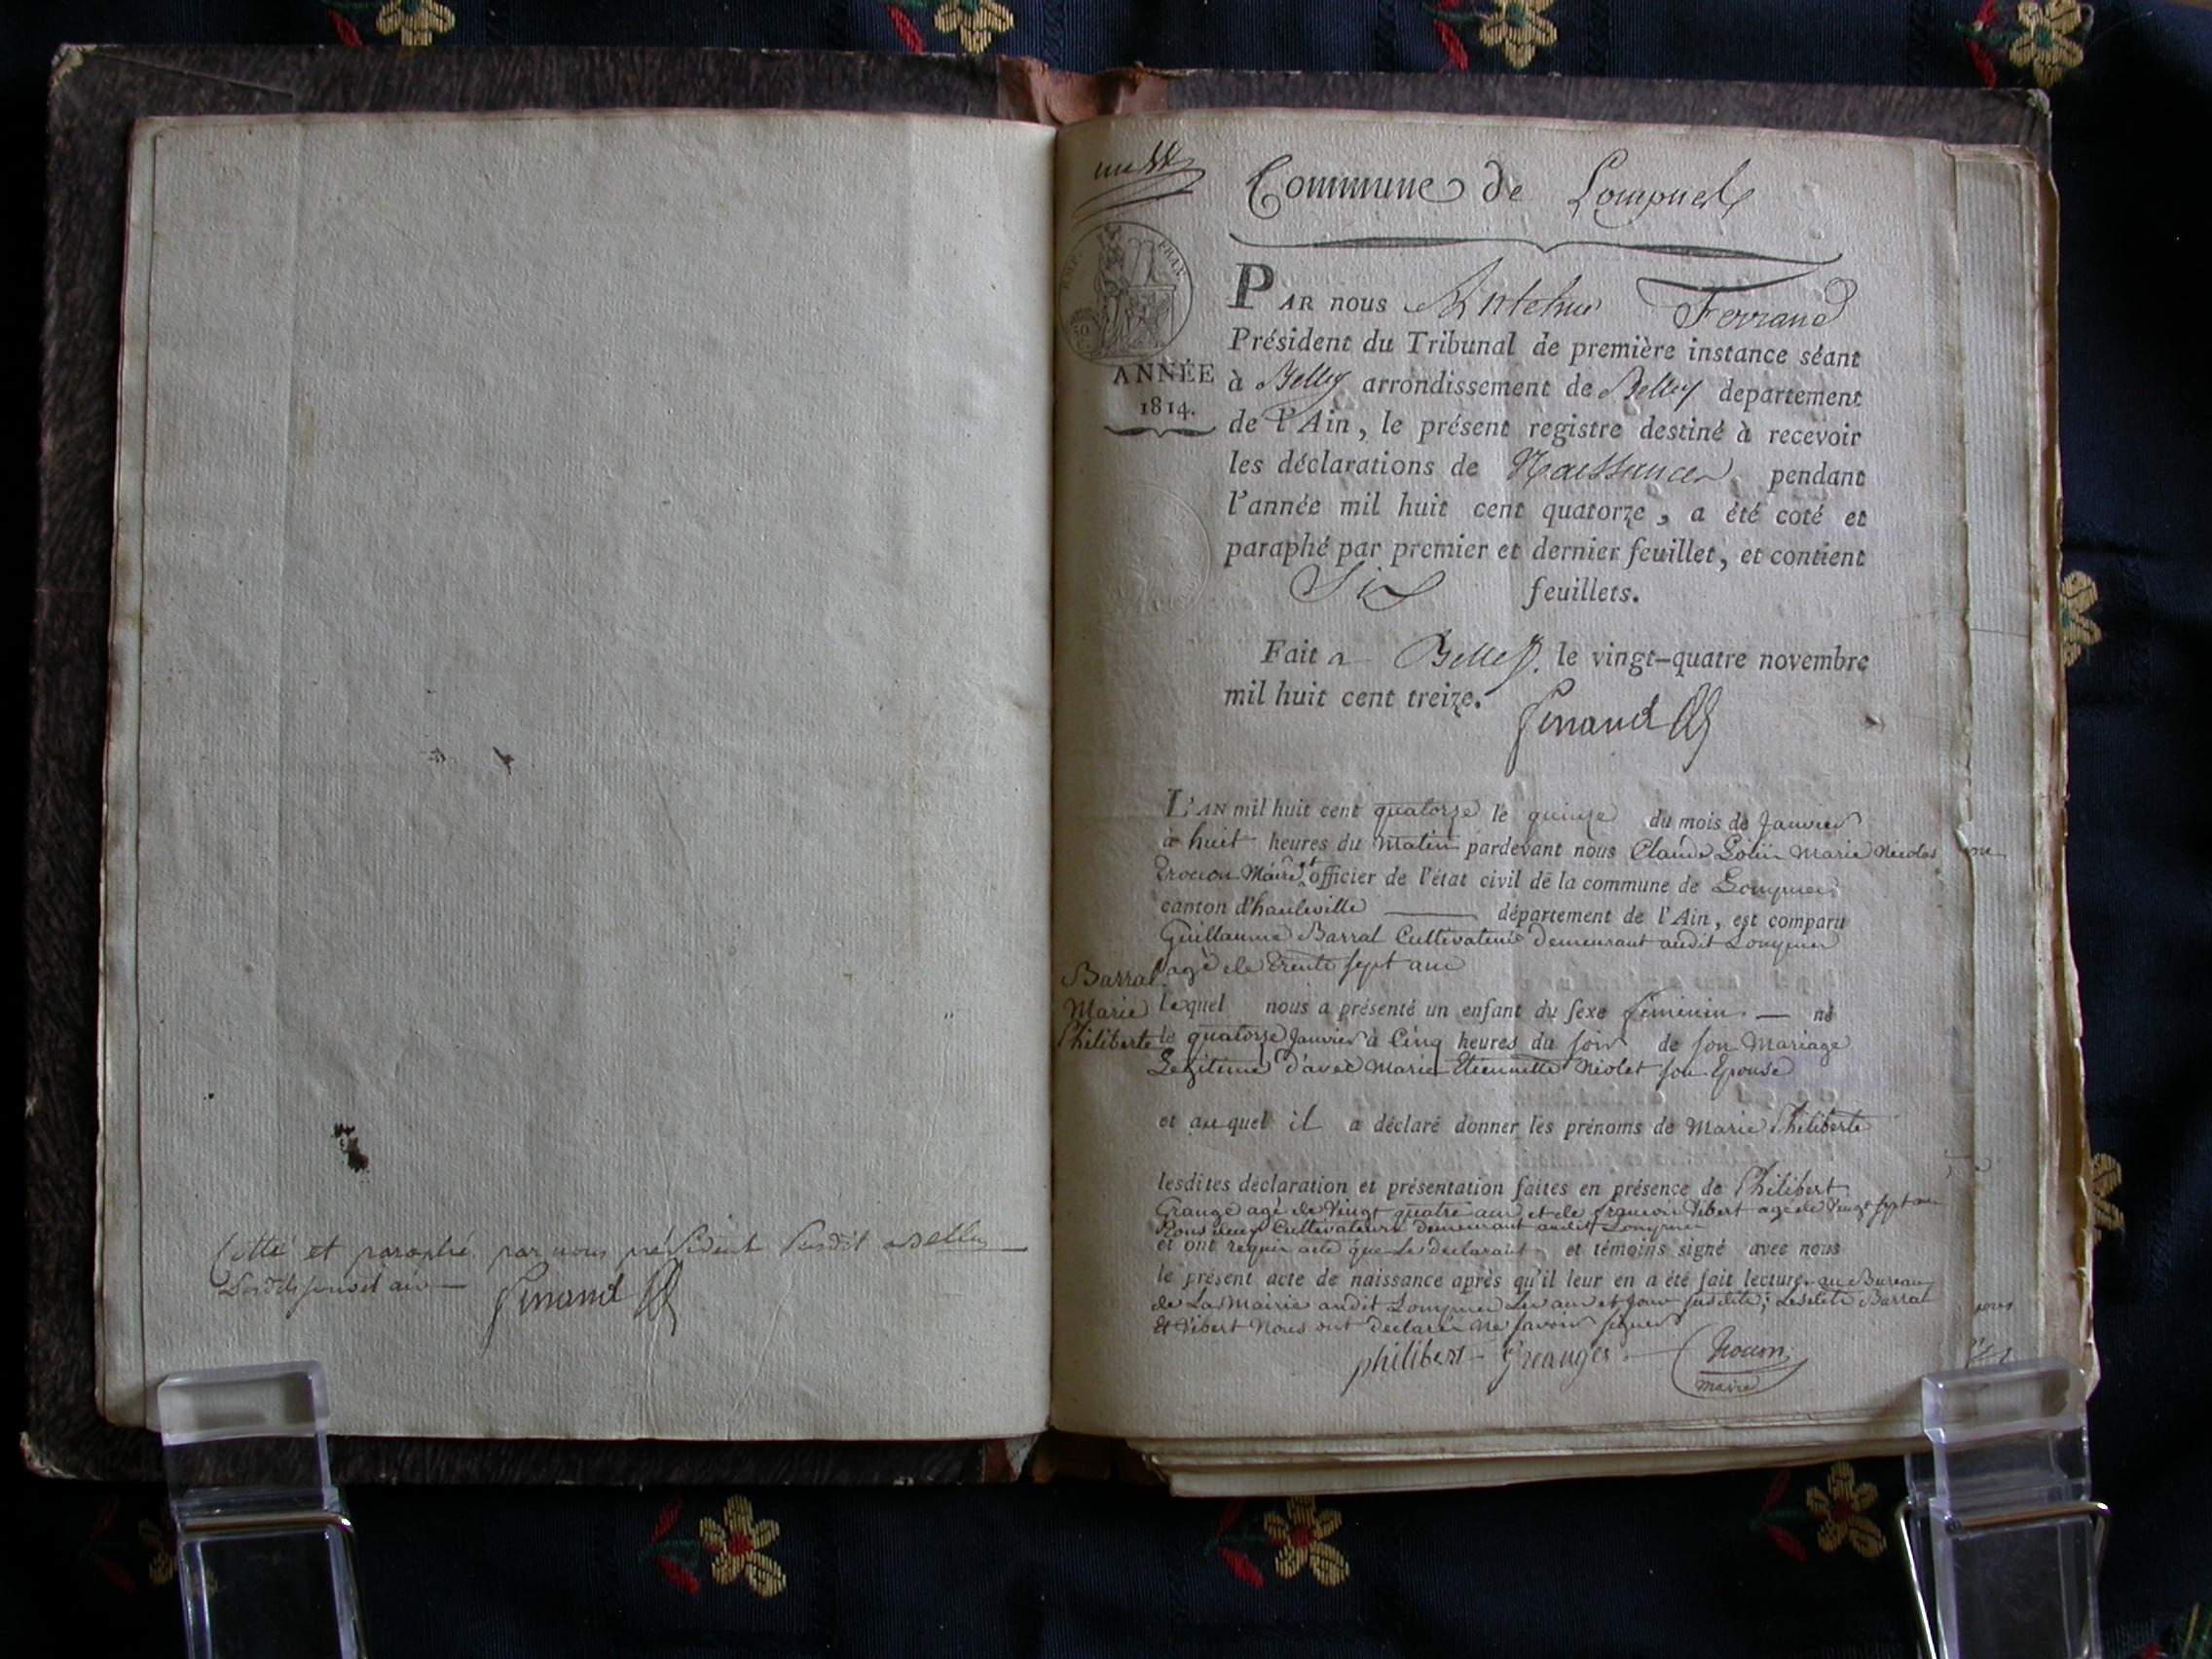 Cotté et paraphé par nous président susdit a Belley
Ferrand
Commune de Lompnes
EMP. FRAN.
50
PAR nous Anthelme Ferrand
Président du Tribunal de première instance séant
ANNÉE
1814.
à Belley arrondissement de Belley departement
de l'Ain, le présent registre destiné à recevoir
les déclarations de Naissances pendant
l'année mil huit cent quatorze, a été coté et
paraphé par premier et dernier feuillet, et contient
Six feuillets.
Fait a Belley. le vingt-quatre novembre
mil huit cent treize.
Ferrand
L'AN mil huit cent quatorze le quinze du mois de Janvier
à huit heures du Matin pardevant nous Claude Marie Nicolas
Trocon Maire et officier de l'état civil de la commune de Lompnes
canton d'hauteville département de l'Ain, est comparu
Guillaume Barral Cultivateur demeurant audit Lompnes
agé de trente sept ans
Barral
Marie
Philiberte
lequel nous a présenté un enfant du sexe féminin né
le quatorze Janvier à Cinq heures du soir de son Mariage
Legitime d'avec Marie Etiennette Niolet son Epouse
et auquel il a déclaré donner les prénoms de Marie Philiberte
lesdites déclaration et présentation faites en présence de Philibert
Grange agé de Vingt quatre ans et de françois Vibert agé de Vingt sept ans
Tous deux Cultivateurs demeurant audit Lompnes
et ont requis acte que Le declarant et témoins signé avec nous
le présent acte de naissance après qu'il leur en a été fait lecture. au Bureau
de La Mairie audit Lompnes Les an et Jour susdits; Lesdits Barral
et Vibert Nous ont declarés ne savoir signer
philibert Greanges Trocon
maire